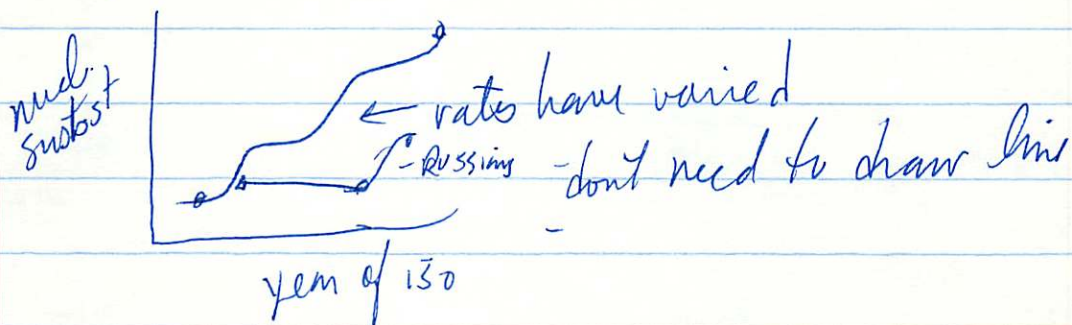 nucl.
substs
← rates have varied
- Russians - dont need to draw line
-
year of iso